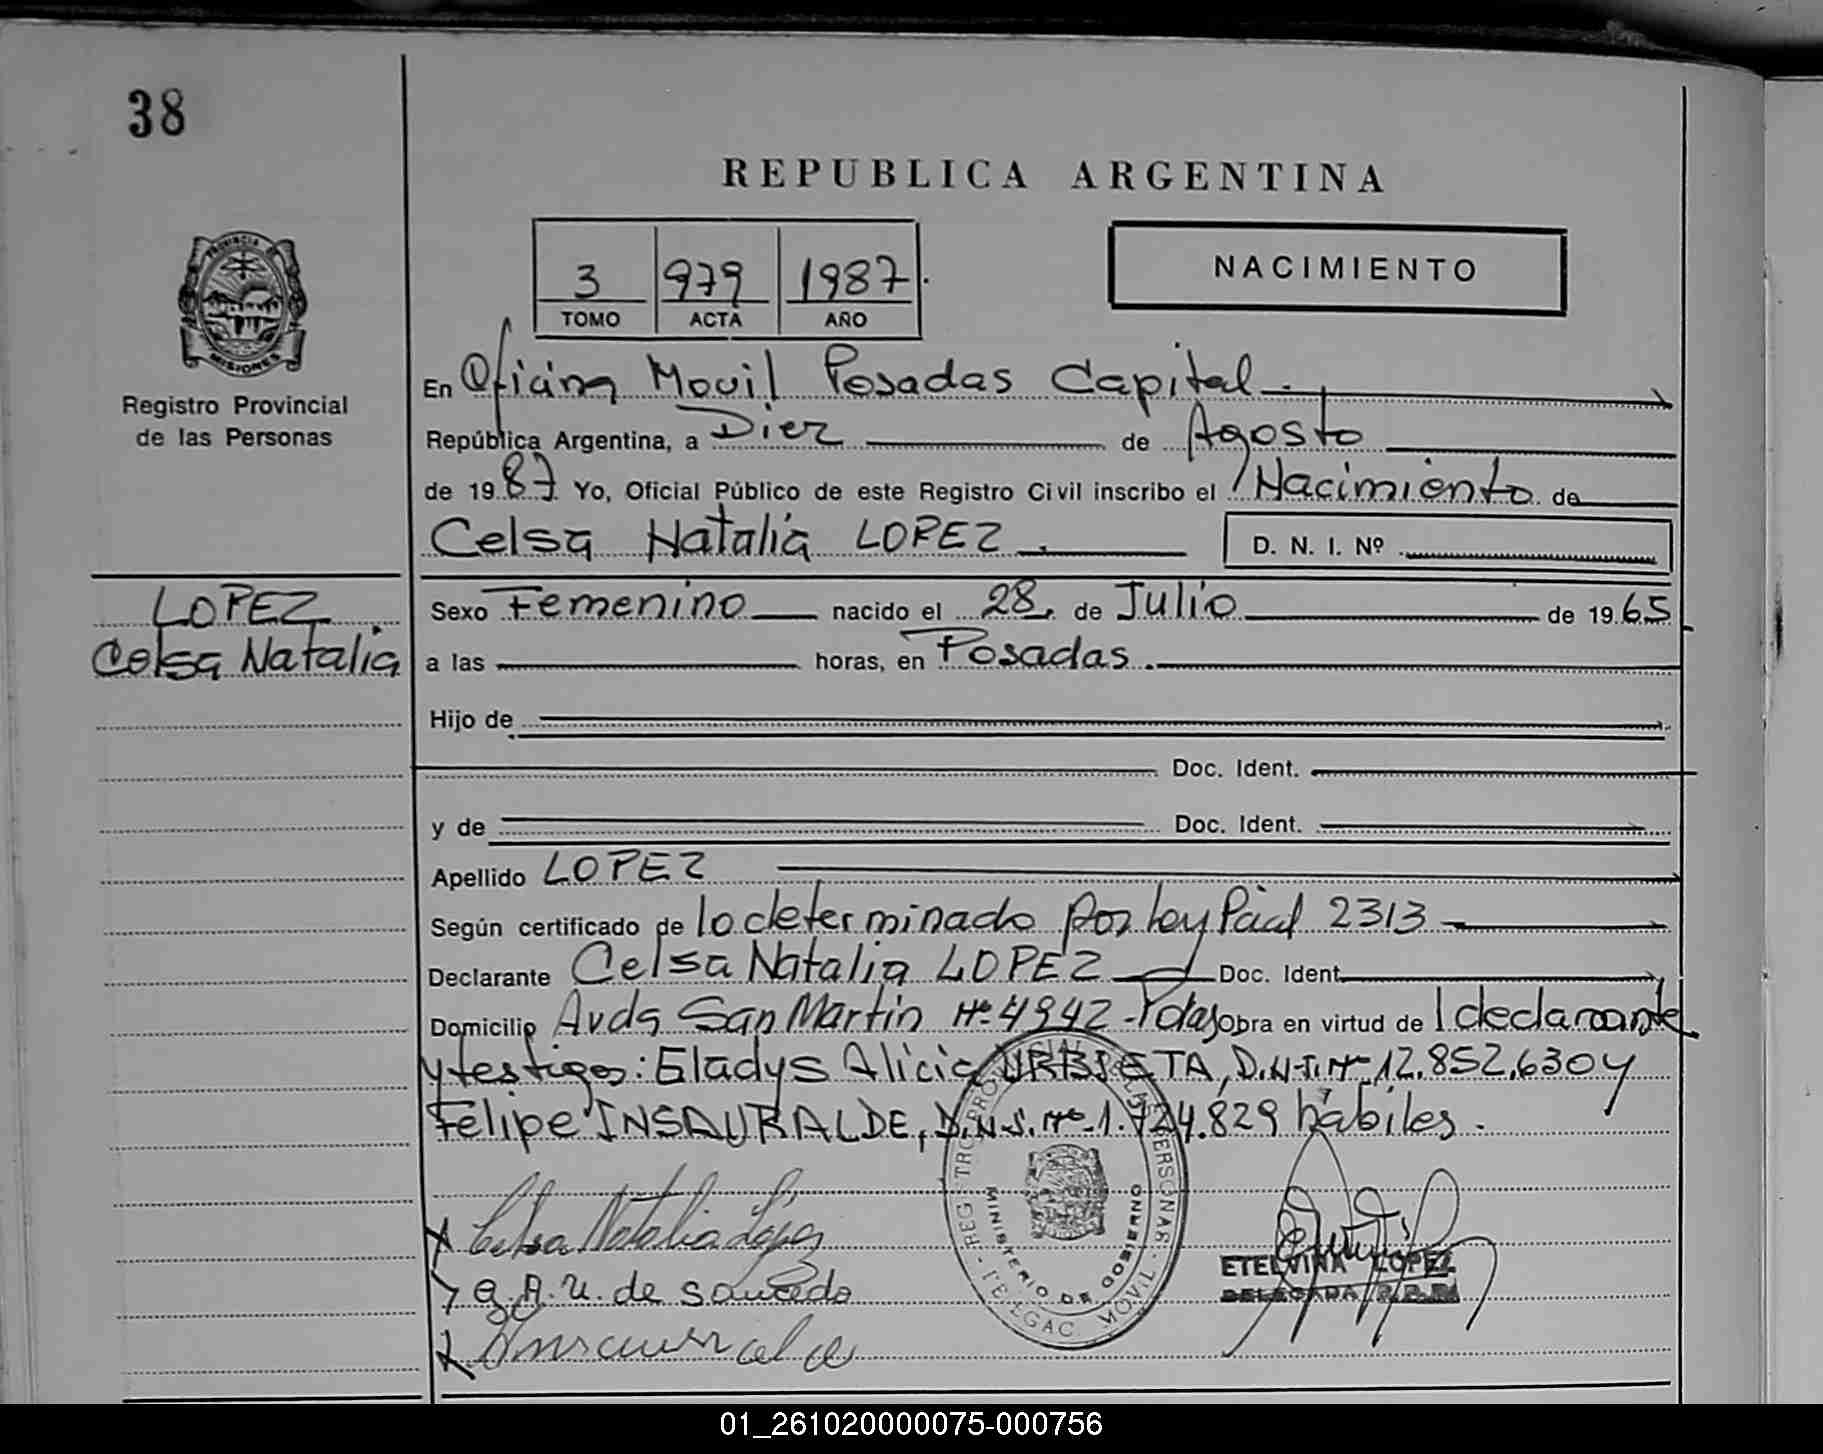 38
REPUBLICA ARGENTINA
3 979 1987
TOMO ACTA AÑO
NACIMIENTO
PROVINCIA DE MISIONES
Registro Provincial
de las Personas
En Oficina Movil Posadas Capital
República Argentina, a Diez de Agosto
de 1987 Yo, Oficial Público de este Registro Civil inscribo el Nacimiento de
Celsa Natalia LOPEZ D. N. I. Nº
LOPEZ
Celsa Natalia
Sexo Femenino nacido el 28 de Julio de 1965
a las horas, en Posadas
Hijo de
Doc. Ident.
y de Doc. Ident.
Apellido LOPEZ
Según certificado de lo determinado por ley Pcial 2313
Declarante Celsa Natalia LOPEZ Doc. Ident.
Domicilio Avda San Martin Nº 4942 - Pdas Obra en virtud de l declarante
y testigos: Gladys Alicia URBIETA, D.N.I. Nº 12.852.630 y
Felipe INSAURALDE, D.N.I. Nº 1.724.829 hábiles.
Celsa Natalia López
G. A. U. de Saucedo
Insaurralde
MINISTERIO DE GOBIERNO
ETELVINA LOPEZ
DELEGADA R.P.P.
01_261020000075-000756